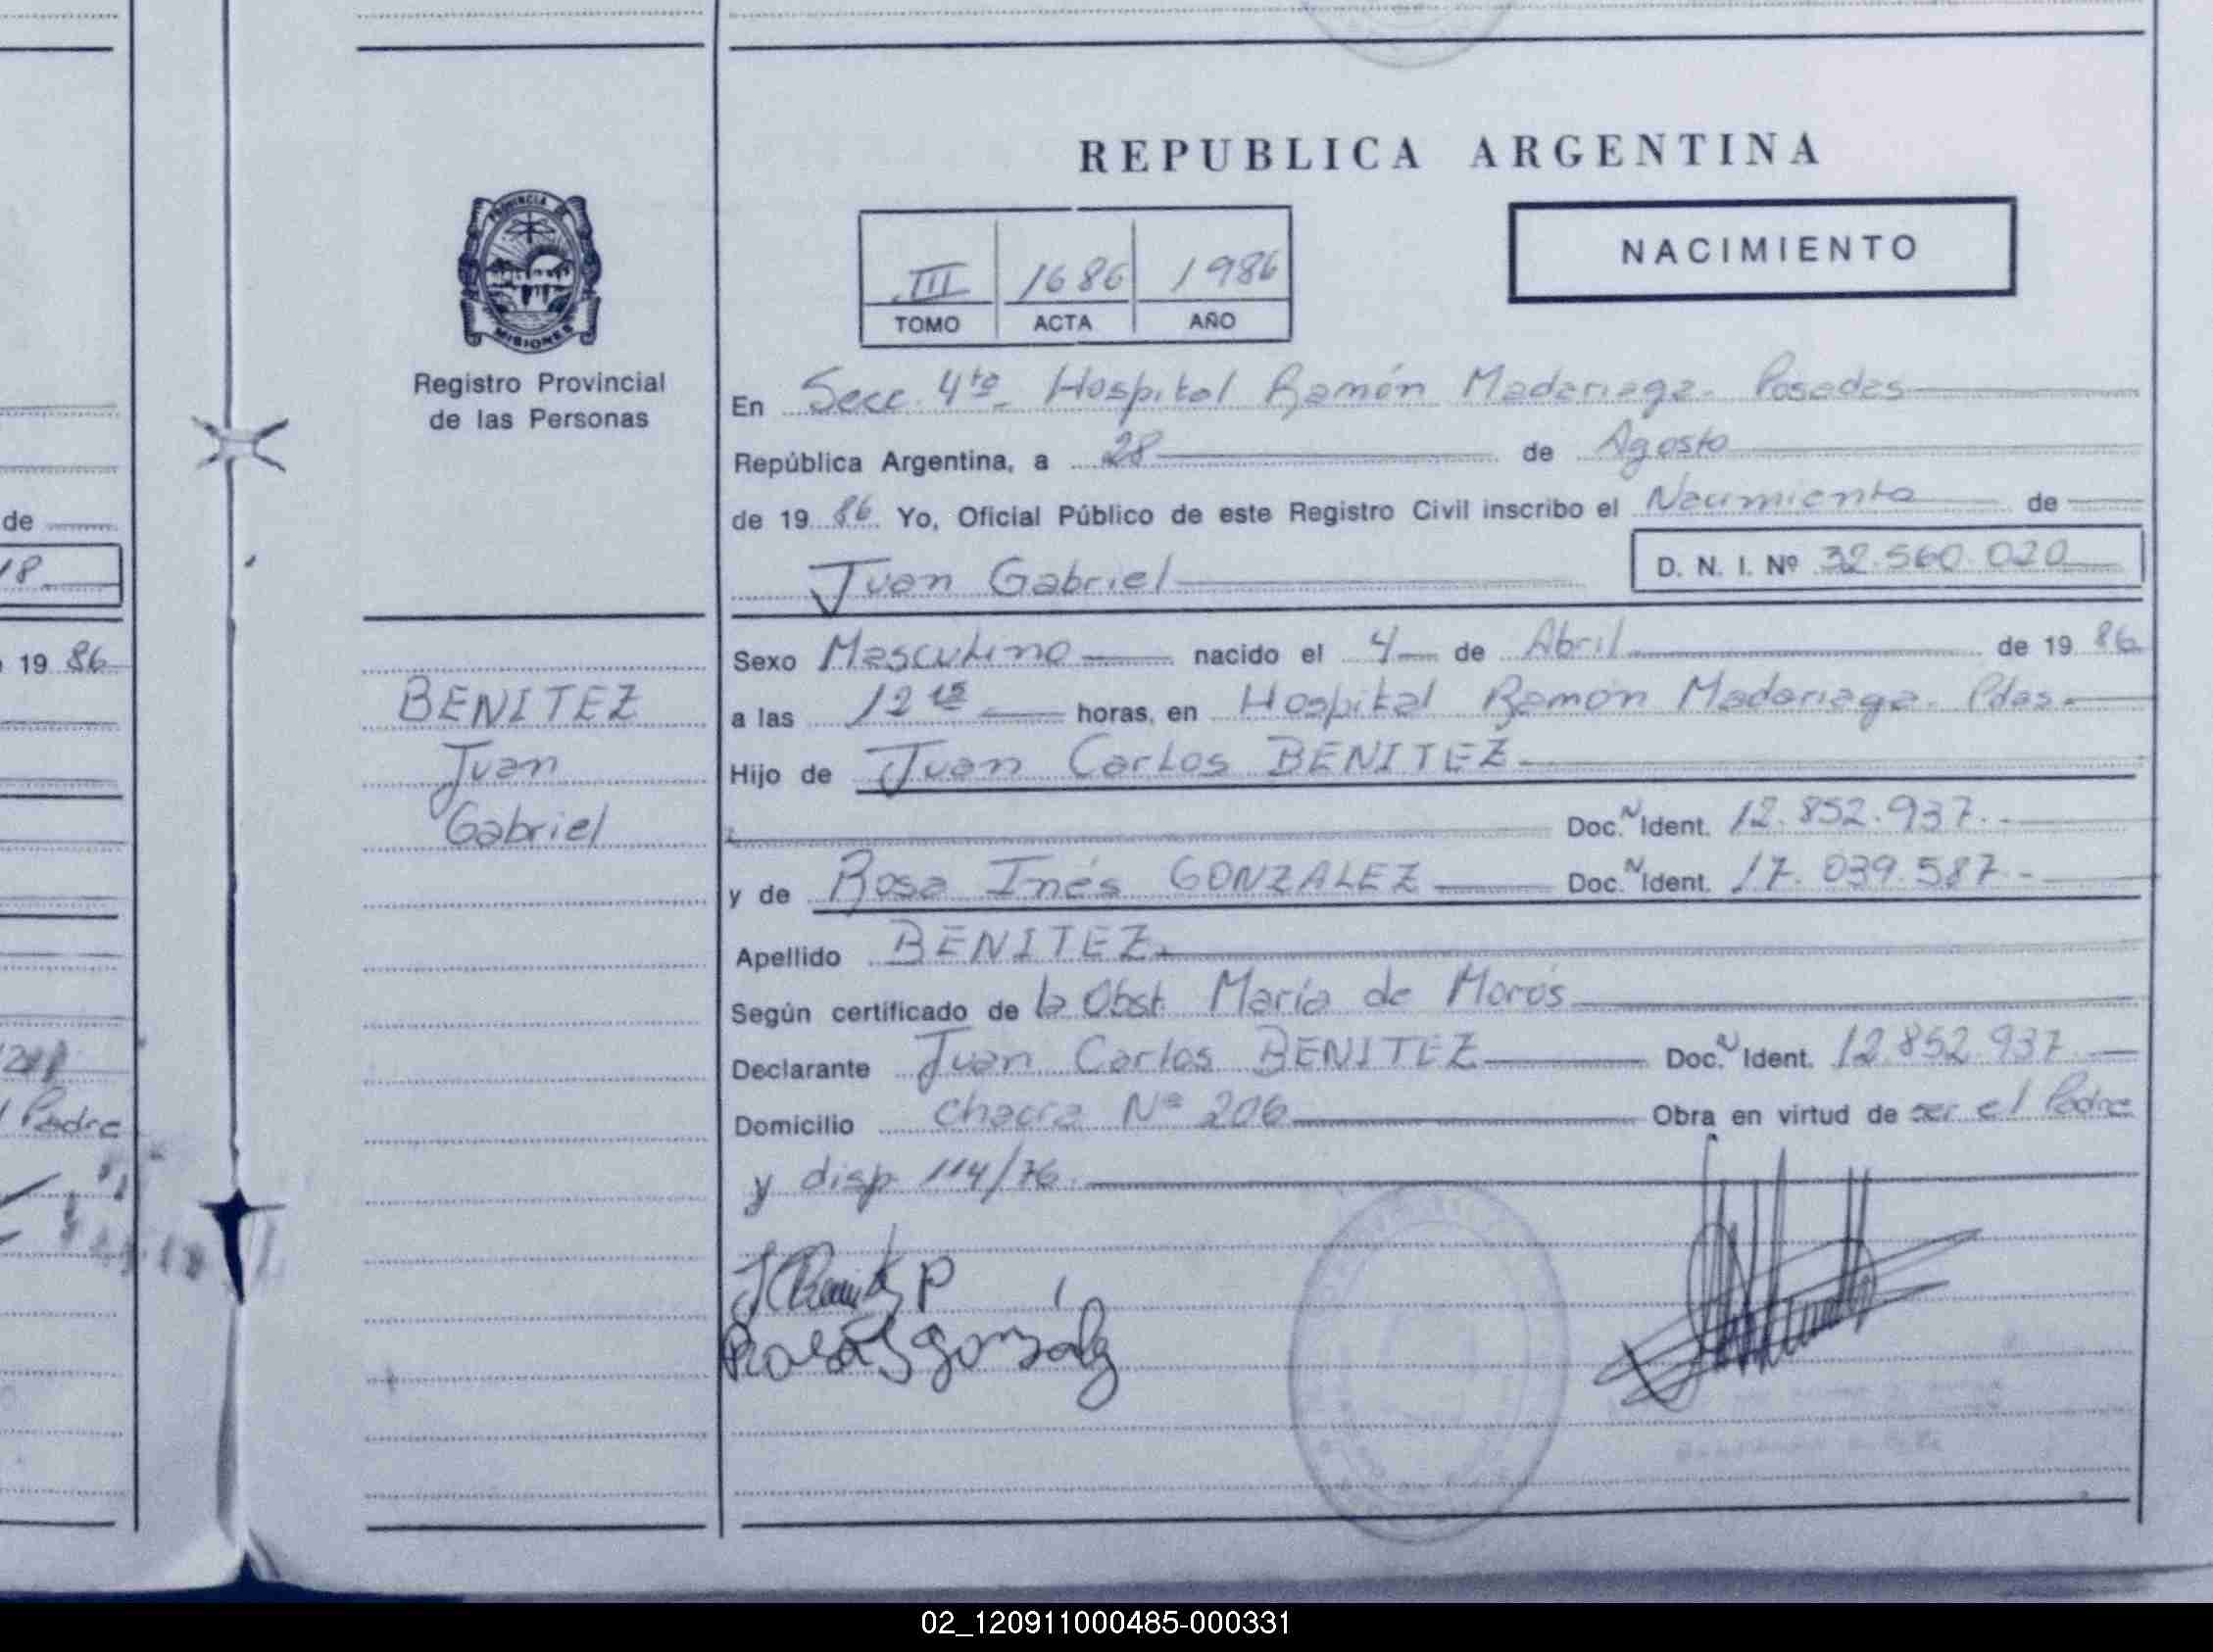 REPUBLICA ARGENTINA
PROVINCIA DE
MISIONES
Registro Provincial
de las Personas
III 1686 1986
TOMO ACTA AÑO
NACIMIENTO
En Secc. 4ta Hospital Ramón Madariaga. Posadas
República Argentina, a 28 de Agosto
de 1986 Yo, Oficial Público de este Registro Civil inscribo el Nacimiento de
Juan Gabriel
D. N. I. Nº 32.560.020
Sexo Masculino nacido el 4 de Abril de 1986
a las 12 15 horas, en Hospital Ramón Madariaga. Pdas.
Hijo de Juan Carlos BENITEZ
Doc. N Ident. 12.852.937.-
y de Rosa Inés GONZALEZ Doc. N Ident. 17.039.587.-
Apellido BENITEZ.
Según certificado de la Obst. María de Morós
Declarante Juan Carlos BENITEZ Doc. N Ident. 12.852.937
Domicilio chacra Nº 206 Obra en virtud de ser el Padre
y disp. 114/76.
BENITEZ
Juan
Gabriel
de
18
19 86
Padre
02_120911000485-000331